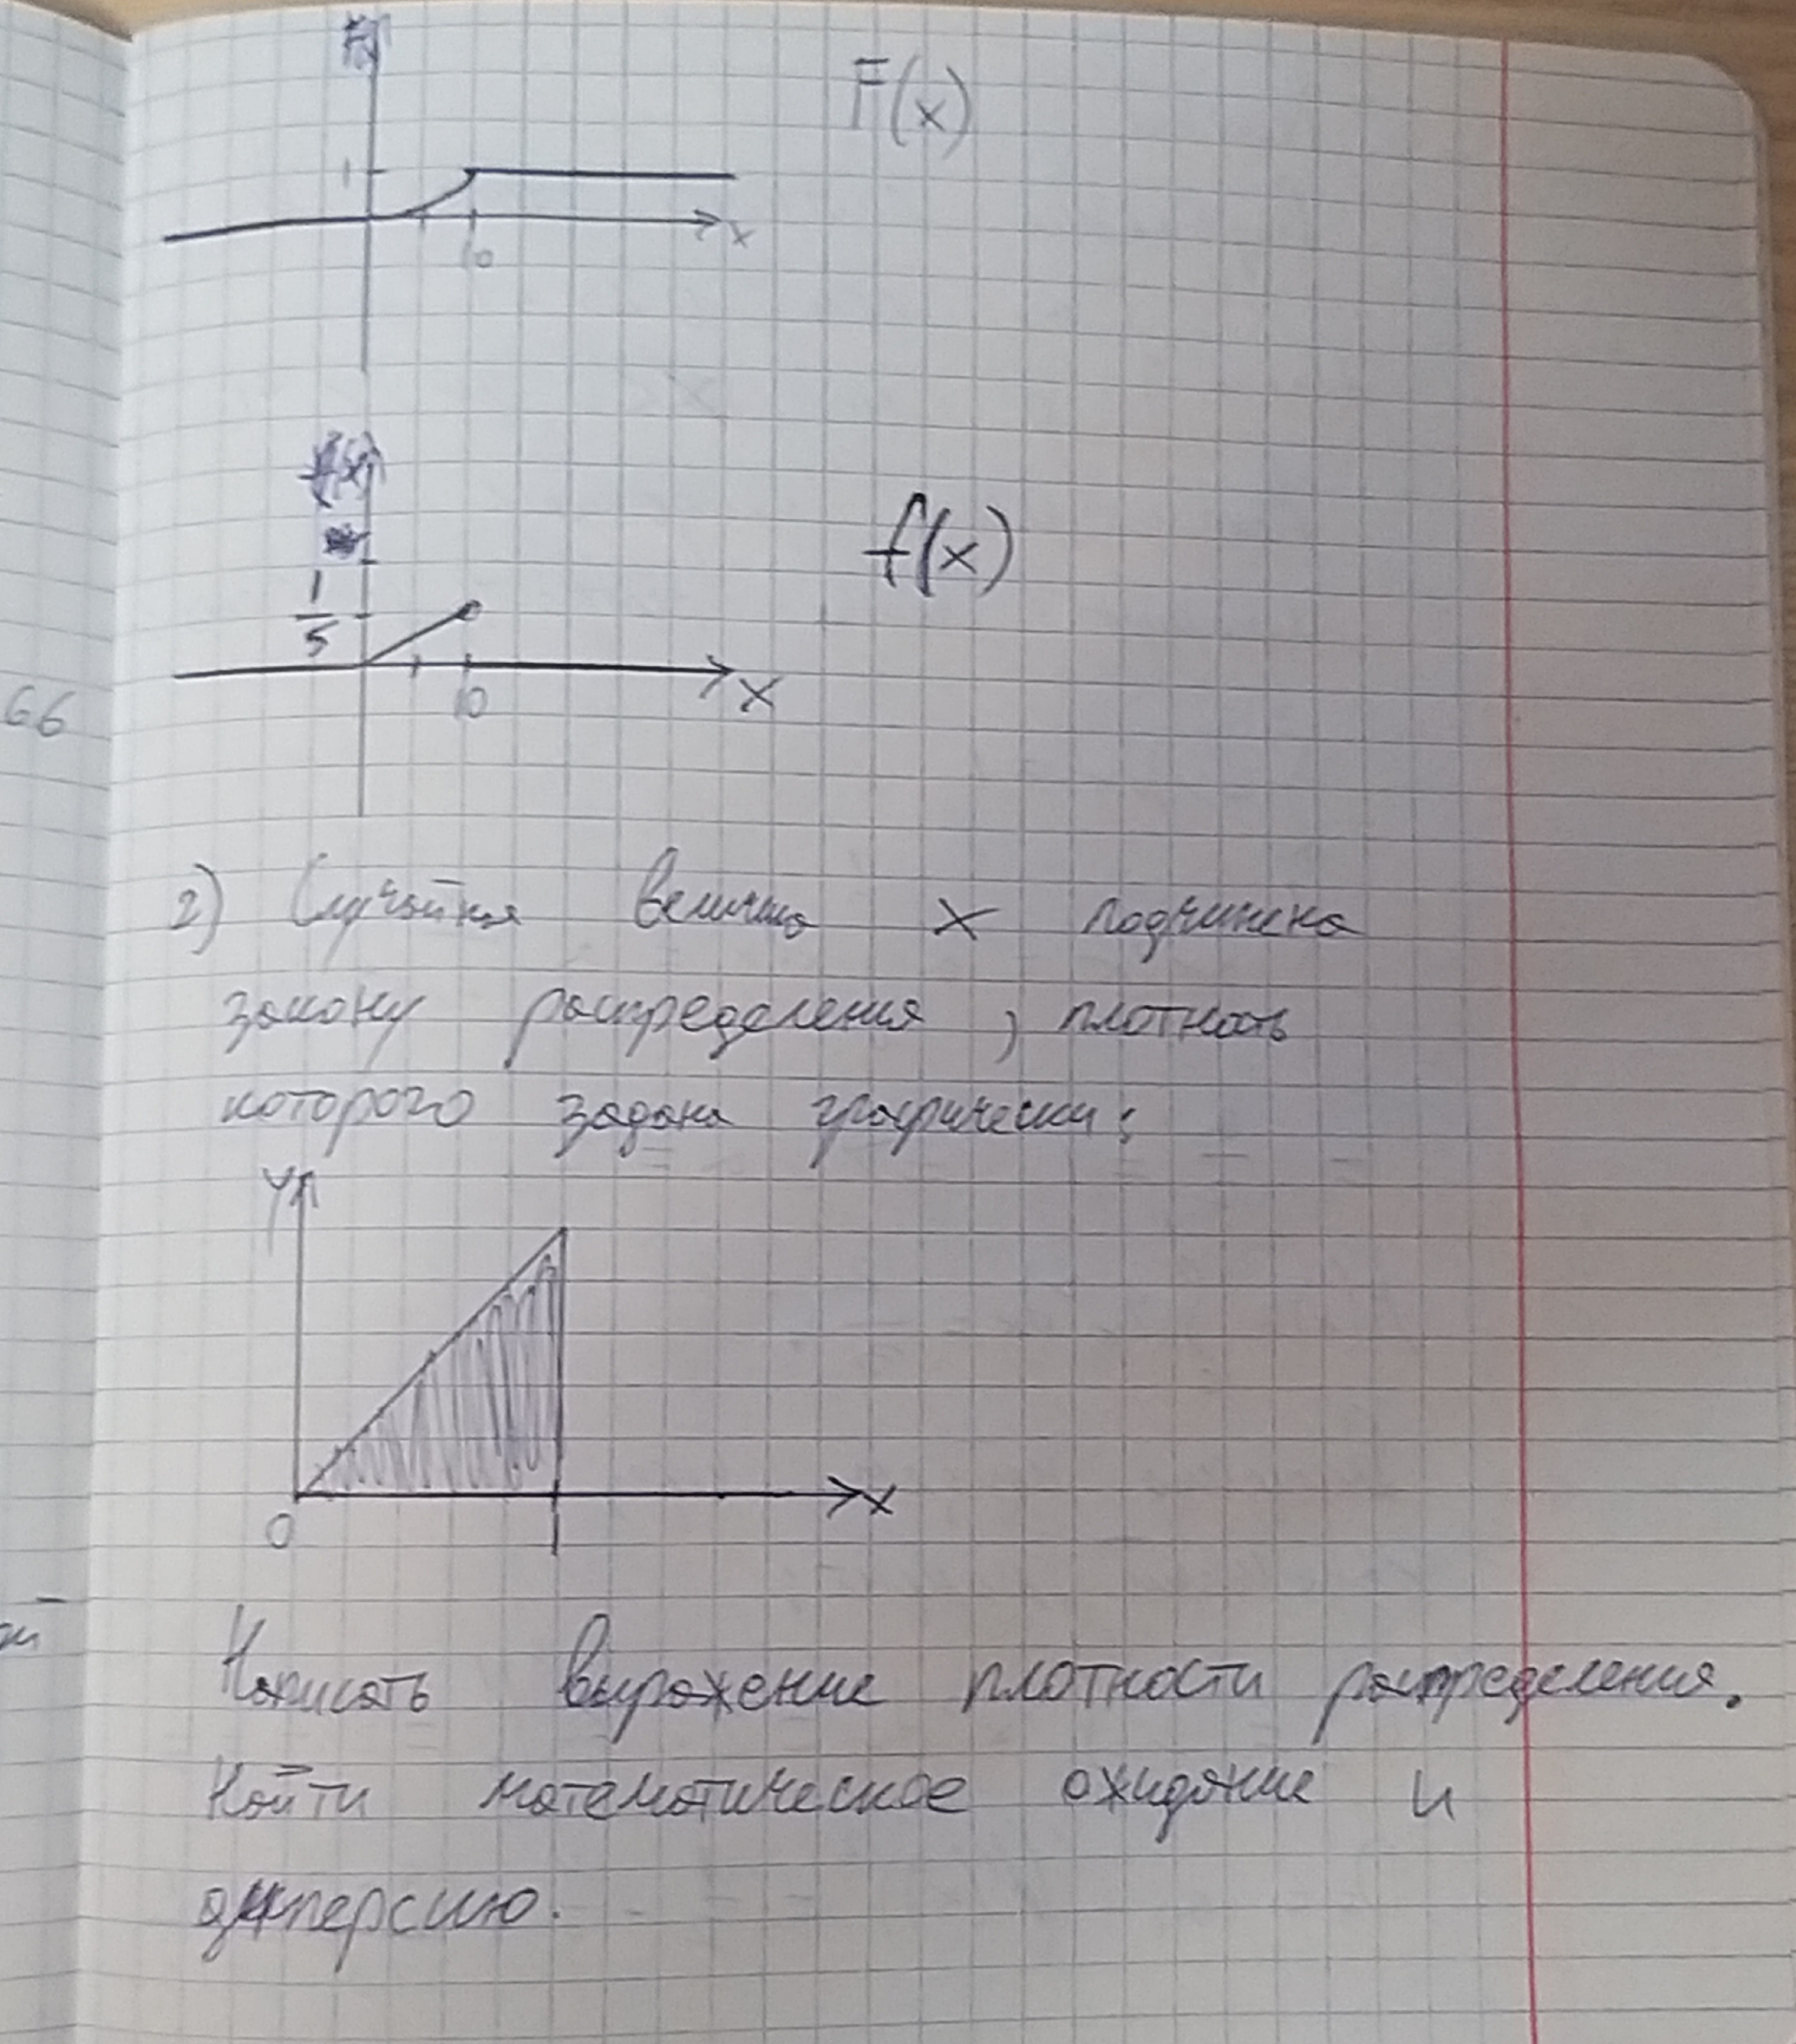 F(x)
1
x
10
f(x)
f(x)
1
5
10
x
66
2) Случайная величина X подчинена
закону распределения, плотность
которого задана графически:
y
0
1
x
Написать выражение плотности распределения.
Найти математическое ожидание и
дисперсию.